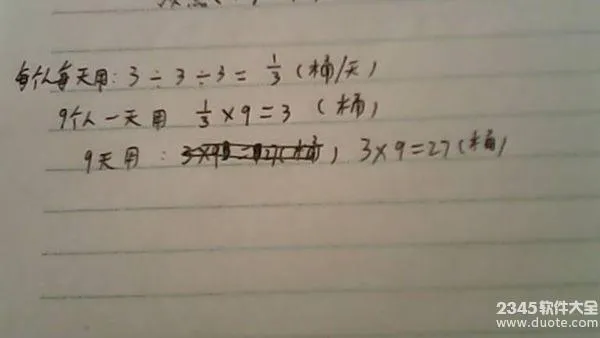 每个人每天用: 3÷3÷3=1/3 (桶/天)
9个人一天用 1/3×9=3 (桶)
9天用: 3×9=27(桶)
2345软件大全
www.duote.com